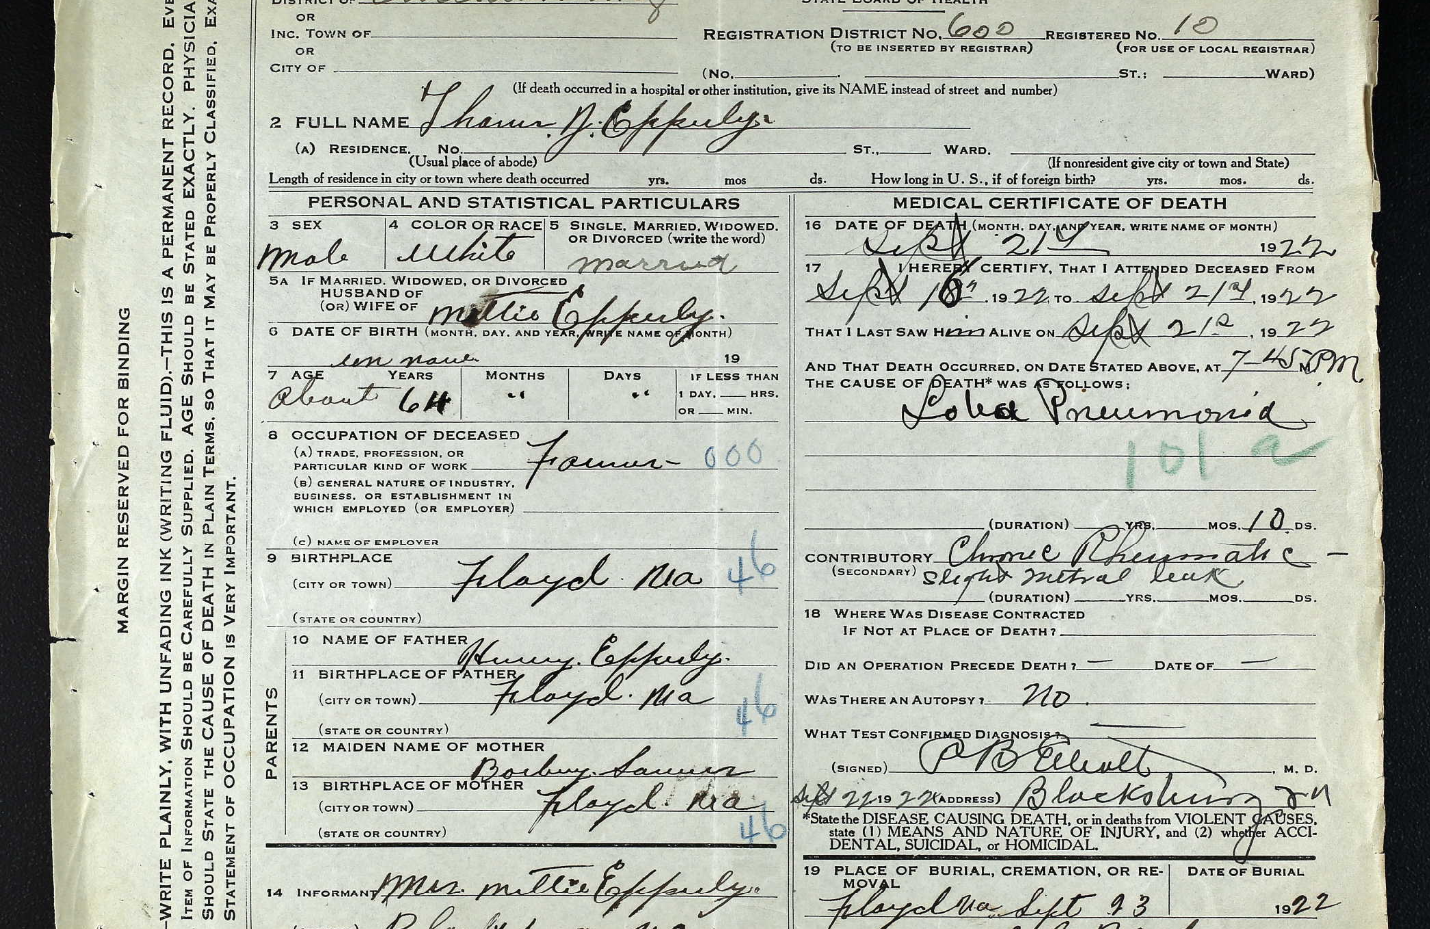 STATE BOARD OF HEALTH
OR
INC. TOWN OF
REGISTRATION DISTRICT NO. 600 REGISTERED NO. 10
(TO BE INSERTED BY REGISTRAR) (FOR USE OF LOCAL REGISTRAR)
OR
CITY OF
(No. ST.; WARD)
(If death occurred in a hospital or other institution, give its NAME instead of street and number)
2 FULL NAME Epperly
(A) RESIDENCE. No. ST., WARD.
(Usual place of abode) (If nonresident give city or town and State)
Length of residence in city or town where death occurred yrs. mos ds. How long in U. S., if of foreign birth? yrs. mos. ds.
PERSONAL AND STATISTICAL PARTICULARS
3 SEX
Male
4 COLOR OR RACE
White
5 SINGLE, MARRIED, WIDOWED, OR DIVORCED (write the word)
married
5A IF MARRIED, WIDOWED, OR DIVORCED
HUSBAND OF
(OR) WIFE OF mittie Epperly.
6 DATE OF BIRTH (MONTH, DAY, AND YEAR, WRITE NAME OF MONTH)
19
7 AGE YEARS MONTHS DAYS IF LESS THAN
About 64 " " 1 DAY, HRS.
OR MIN.
8 OCCUPATION OF DECEASED
(A) TRADE, PROFESSION, OR
PARTICULAR KIND OF WORK Farmer 000
(B) GENERAL NATURE OF INDUSTRY,
BUSINESS, OR ESTABLISHMENT IN
WHICH EMPLOYED (OR EMPLOYER)
(C) NAME OF EMPLOYER
9 BIRTHPLACE
(CITY OR TOWN) Floyd Va 46
(STATE OR COUNTRY)
PARENTS
10 NAME OF FATHER
Epperly.
11 BIRTHPLACE OF FATHER
(CITY OR TOWN) Floyd. Va 46
(STATE OR COUNTRY)
12 MAIDEN NAME OF MOTHER
13 BIRTHPLACE OF MOTHER
(CITY OR TOWN) Floyd Va
(STATE OR COUNTRY) 46
14 INFORMANT Mrs. mittie Epperly
MEDICAL CERTIFICATE OF DEATH
16 DATE OF DEATH (MONTH, DAY, AND YEAR, WRITE NAME OF MONTH)
Sept 21st 1922
17 I HEREBY CERTIFY, THAT I ATTENDED DECEASED FROM
Sept , 1922, TO Sept 21st, 1922
THAT I LAST SAW HIM ALIVE ON Sept 21st, 1922
AND THAT DEATH OCCURRED, ON DATE STATED ABOVE, AT 7-45 PM
THE CAUSE OF DEATH* WAS AS FOLLOWS:
Lobar Pneumonia
101 a
(DURATION) YRS. MOS. 10 DS.
CONTRIBUTORY Chronic Rheumatic -
(SECONDARY) slight mitral leak
(DURATION) YRS. MOS. DS.
18 WHERE WAS DISEASE CONTRACTED
IF NOT AT PLACE OF DEATH?
DID AN OPERATION PRECEDE DEATH? — DATE OF —
WAS THERE AN AUTOPSY? No.
WHAT TEST CONFIRMED DIAGNOSIS?
(SIGNED) , M. D.
Sept 22 1922 (ADDRESS) Blacksburg
*State the DISEASE CAUSING DEATH, or in deaths from VIOLENT CAUSES,
state (1) MEANS AND NATURE OF INJURY, and (2) whether ACCI-
DENTAL, SUICIDAL, or HOMICIDAL.
19 PLACE OF BURIAL, CREMATION, OR RE-
MOVAL
DATE OF BURIAL
Floyd Va Sept 23 1922
MARGIN RESERVED FOR BINDING
—WRITE PLAINLY, WITH UNFADING INK (WRITING FLUID).—THIS IS A PERMANENT RECORD.
ITEM OF INFORMATION SHOULD BE CAREFULLY SUPPLIED. AGE SHOULD BE STATED EXACTLY.
SHOULD STATE THE CAUSE OF DEATH IN PLAIN TERMS, SO THAT IT MAY BE PROPERLY CLASSIFIED.
STATEMENT OF OCCUPATION IS VERY IMPORTANT.